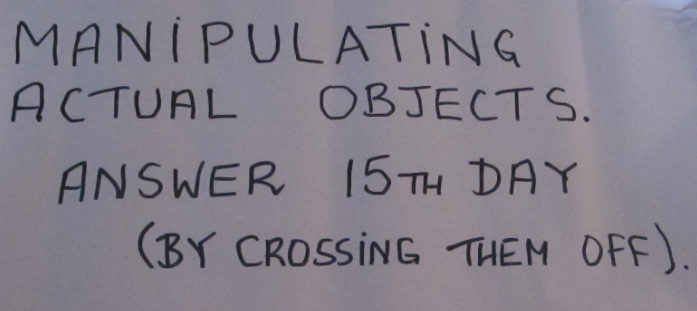 MANIPULATING
ACTUAL OBJECTS.
ANSWER 15TH DAY
(BY CROSSING THEM OFF).